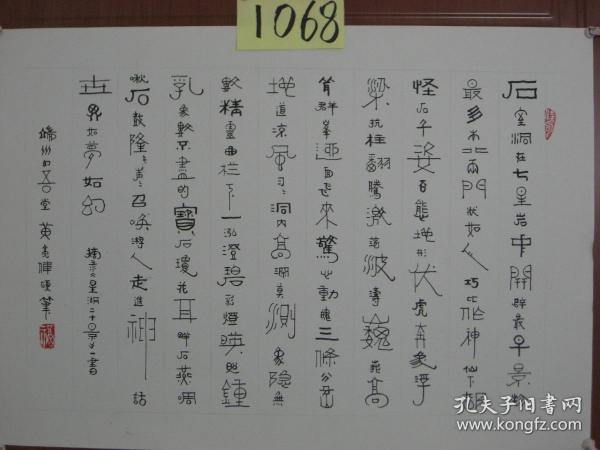 1068
石室洞在七星岩中開辟最早景物
最多南北兩門狀如人巧比作神仙下
怪石千姿百態地形伏虎奔象浮
梁抗柱翻騰激湍波濤巍莪高
聳群峯迎面起來驚心動魄三條分岔
地道涼風習習洞內高潤莫測象隐無
數精靈曲栏下一泓澄碧彩燈映照鍾
乳象數不盡的寶石瓊花耳畔石燕啁
啾石鼓隆隆聲召喚游人走進神話
世界如夢如幻
摘录七星洞二十景之一書
端州
堂黄
偉硬筆
孔夫子旧书网
www.kongfz.com